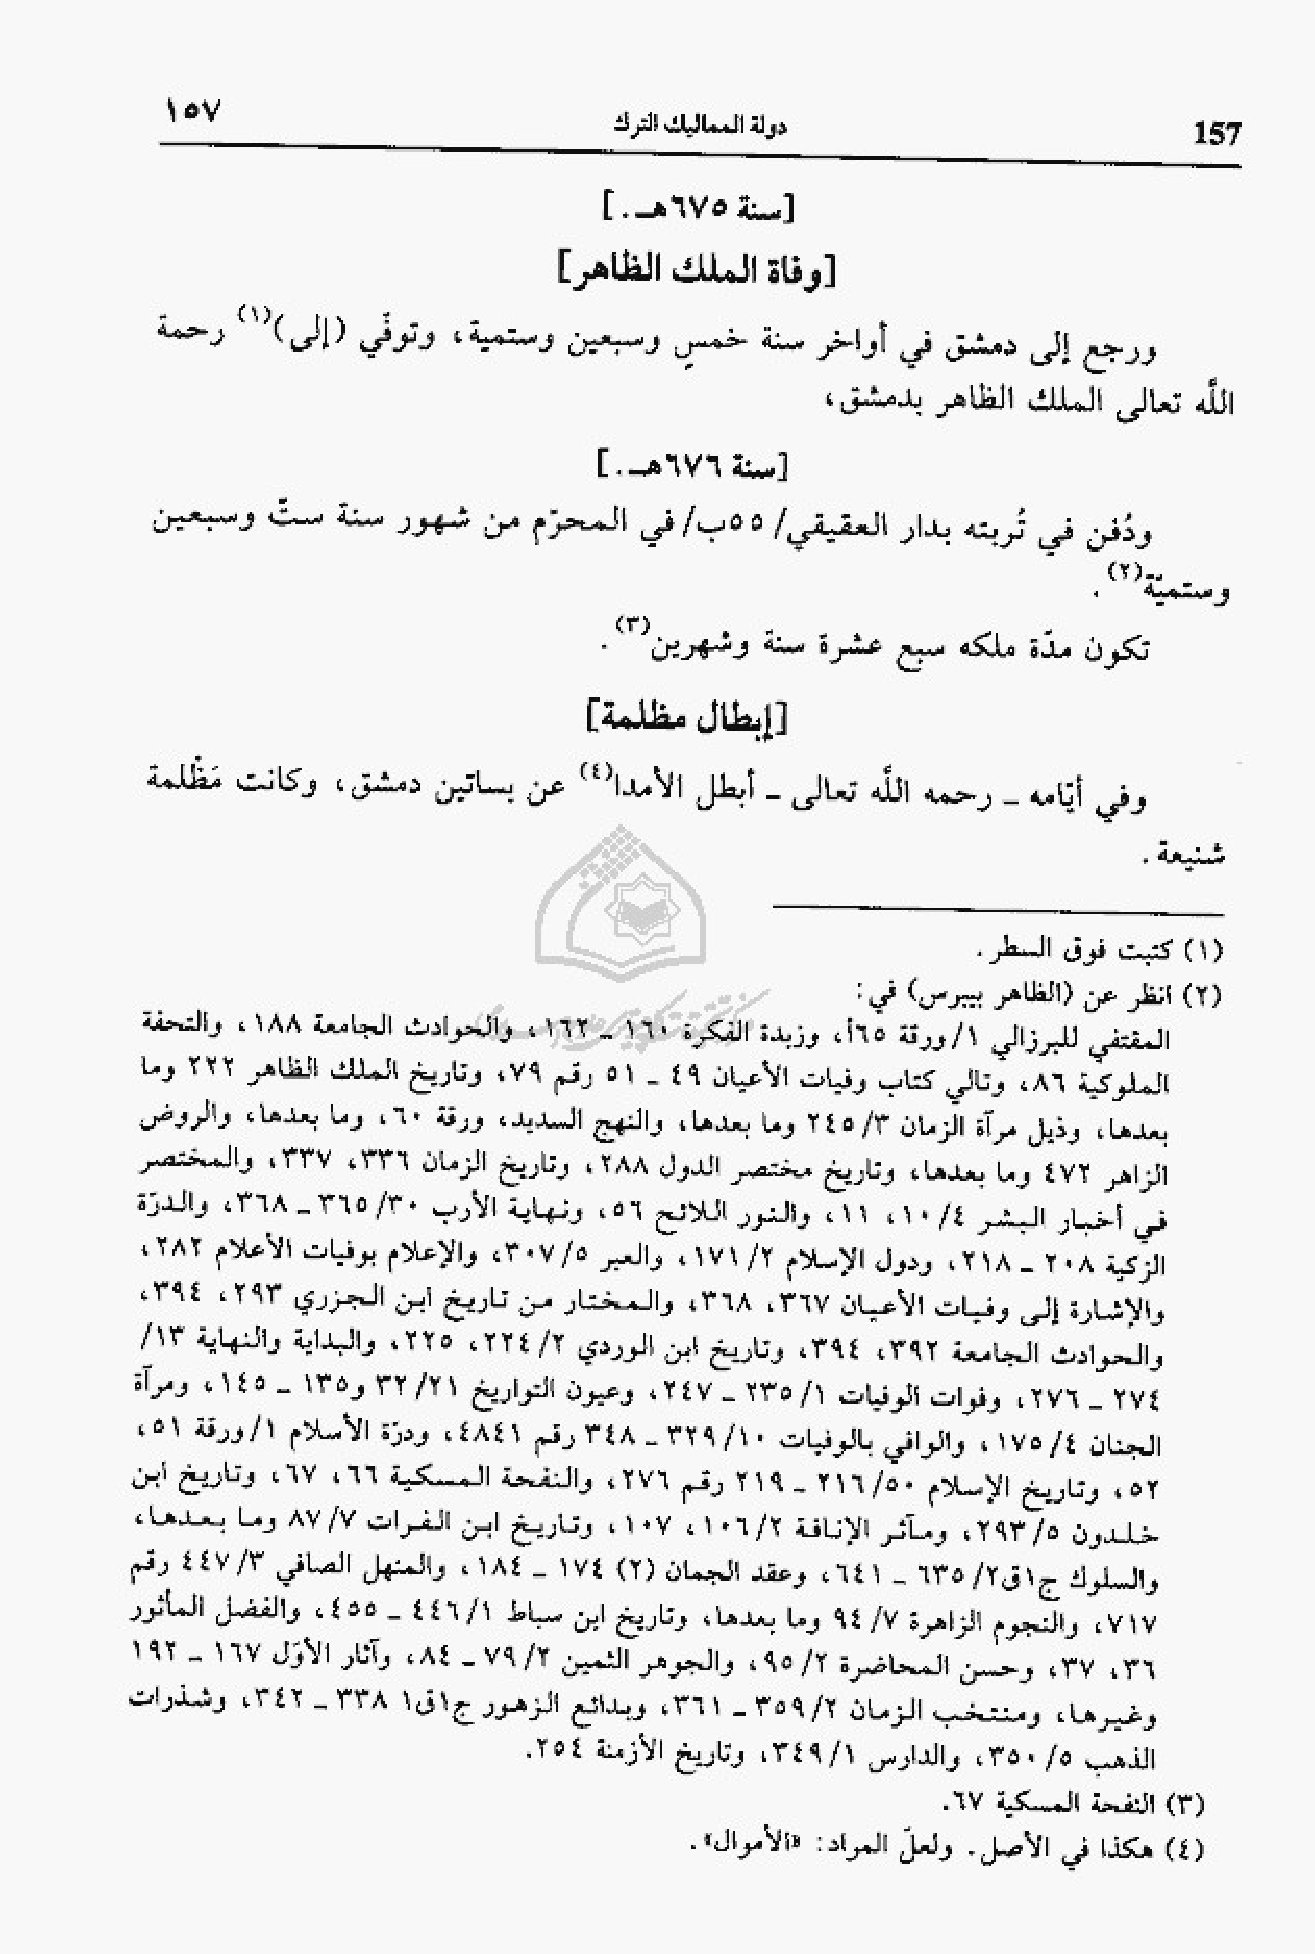 ١٥٧
دولة المماليك الترك
157
[سنة ٦٧٥هـ.]
[وفاة الملك الظاهر]
ورجع إلى دمشق في أواخر سنة خمسٍ وسبعين وستمية، وتوفّي (إلى)(١) رحمة
اللَّه تعالى الملك الظاهر بدمشق،
[سنة ٦٧٦هـ.]
ودُفن في تُربته بدار العقيقي/ ٥٥ب/ في المحرّم من شهور سنة ستّ وسبعين
وستميّة(٢).
تكون مدّة ملكه سبع عشرة سنة وشهرين(٣).
[إبطال مظلمة]
وفي أيّامه ـ رحمه اللَّه تعالى ـ أبطل الأمدا(٤) عن بساتين دمشق، وكانت مَظْلمة
شنيعة.
(١) كتبت فوق السطر.
(٢) انظر عن (الظاهر بيبرس) في:
المقتفي للبرزالي ١/ ورقة ٦٥أ، وزبدة الفكرة ١٦٠ ـ ١٦٢، والحوادث الجامعة ١٨٨، والتحفة
الملوكية ٨٦، وتالي كتاب وفيات الأعيان ٤٩ ـ ٥١ رقم ٧٩، وتاريخ الملك الظاهر ٢٢٢ وما
بعدها، وذيل مرآة الزمان ٣/ ٢٤٥ وما بعدها، والنهج السديد، ورقة ٦٠، وما بعدها، والروض
الزاهر ٤٧٢ وما بعدها، وتاريخ مختصر الدول ٢٨٨، وتاريخ الزمان ٣٣٦، ٣٣٧، والمختصر
في أخبار البشر ٤/ ١٠، ١١، والنور اللائح ٥٦، ونهاية الأرب ٣٠/ ٣٦٥ ـ ٣٦٨، والدرّة
الزكية ٢٠٨ ـ ٢١٨، ودول الإسلام ٢/ ١٧١، والعبر ٥/ ٣٠٧، والإعلام بوفيات الأعلام ٢٨٢،
والإشارة إلى وفيات الأعيان ٣٦٧، ٣٦٨، والمختار من تاريخ ابن الجزري ٢٩٣، ٣٩٤،
والحوادث الجامعة ٣٩٢، ٣٩٤، وتاريخ ابن الوردي ٢/ ٢٢٤، ٢٢٥، والبداية والنهاية ١٣/
٢٧٤ ـ ٢٧٦، وفوات الوفيات ١/ ٢٣٥ ـ ٢٤٧، وعيون التواريخ ٢١/ ٣٢ و١٣٥ ـ ١٤٥، ومرآة
الجنان ٤/ ١٧٥، والوافي بالوفيات ١٠/ ٣٢٩ ـ ٣٤٨ رقم ٤٨٤١، ودرّة الأسلام ١/ ورقة ٥١،
٥٢، وتاريخ الإسلام ٥٠/ ٢١٦ ـ ٢١٩ رقم ٢٧٦، والنفحة المسكية ٦٦، ٦٧، وتاريخ ابن
خلدون ٥/ ٢٩٣، ومآثر الإنافة ٢/ ١٠٦، ١٠٧، وتاريخ ابن الفرات ٧/ ٨٧ وما بعدها،
والسلوك ج١ق٢/ ٦٣٥ ـ ٦٤١، وعقد الجمان (٢) ١٧٤ ـ ١٨٤، والمنهل الصافي ٣/ ٤٤٧ رقم
٧١٧، والنجوم الزاهرة ٧/ ٩٤ وما بعدها، وتاريخ ابن سباط ١/ ٤٤٦ ـ ٤٥٥، والفضل المأثور
٣٦، ٣٧، وحسن المحاضرة ٢/ ٩٥، والجوهر الثمين ٢/ ٧٩ ـ ٨٤، وآثار الأوَل ١٦٧ ـ ١٩٢
وغيرها، ومنتخب الزمان ٢/ ٣٥٩ ـ ٣٦١، وبدائع الزهور ج١ق١ ٣٣٨ ـ ٣٤٢، وشذرات
الذهب ٥/ ٣٥٠، والدارس ١/ ٣٤٩، وتاريخ الأزمنة ٢٥٤.
(٣) النفحة المسكية ٦٧.
(٤) هكذا في الأصل. ولعلّ المراد: «الأموال».